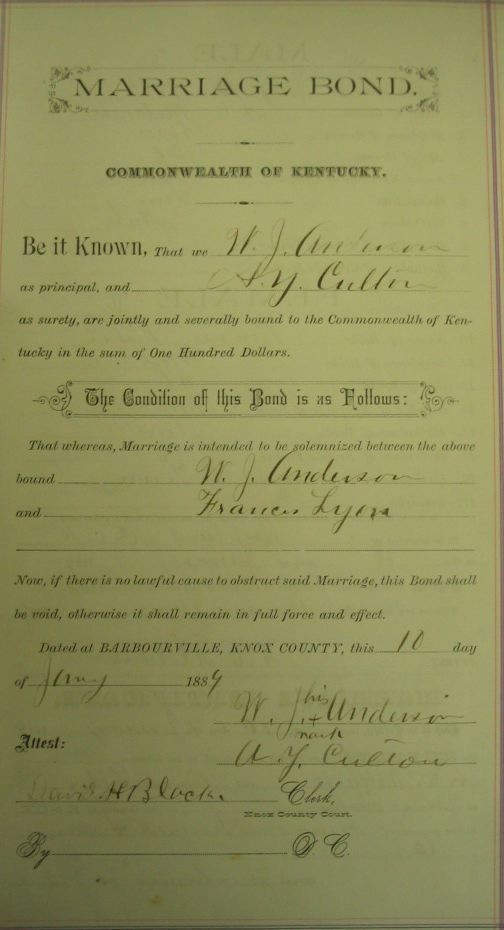 MARRIAGE BOND.
COMMONWEALTH OF KENTUCKY.
Be it Known, That we W. J. Anderson
as principal, and A. Y. Culton
as surety, are jointly and severally bound to the Commonwealth of Ken-
tucky in the sum of One Hundred Dollars.
The Condition of this Bond is as Follows:
That whereas, Marriage is intended to be solemnized between the above
bound W. J. Anderson
and Frances Lyon
Now, if there is no lawful cause to obstruct said Marriage, this Bond shall
be void, otherwise it shall remain in full force and effect.
Dated at BARBOURVILLE, KNOX COUNTY, this 10 day
of Jany 1889
his
W. J. + Anderson
mark
Attest:
A. Y. Culton
David H Black. Clerk,
Knox County Court.
By D. C.